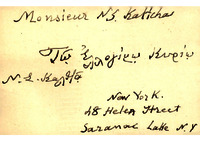 Monsieur N. G. Kaltcha
Τῷ ἐλλογίμῳ Κυρίῳ
Ν. Γ. Καλτσᾷ
New York.
48 Helen Street
Saranac Lake N.Y